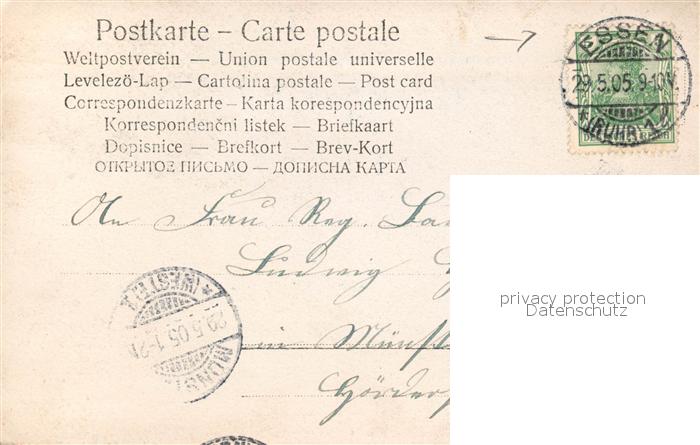 Postkarte – Carte postale
Weltpostverein — Union postale universelle
Levelező-Lap — Cartolina postale — Post card
Correspondenzkarte — Karta korespondencyjna
Korrespondenční listek — Briefkaart
Dopisnice — Brefkort — Brev-Kort
ОТКРЫТОЕ ПИСЬМО — ДОПИСНА КАРТА
ESSEN
29.5.05. 9-10V.
* (RUHR) 1
An Frau Reg.
Ludwig
in Münst
(WESTF.)
29.5.05. 1-2
MÜNST
privacy protection
Datenschutz